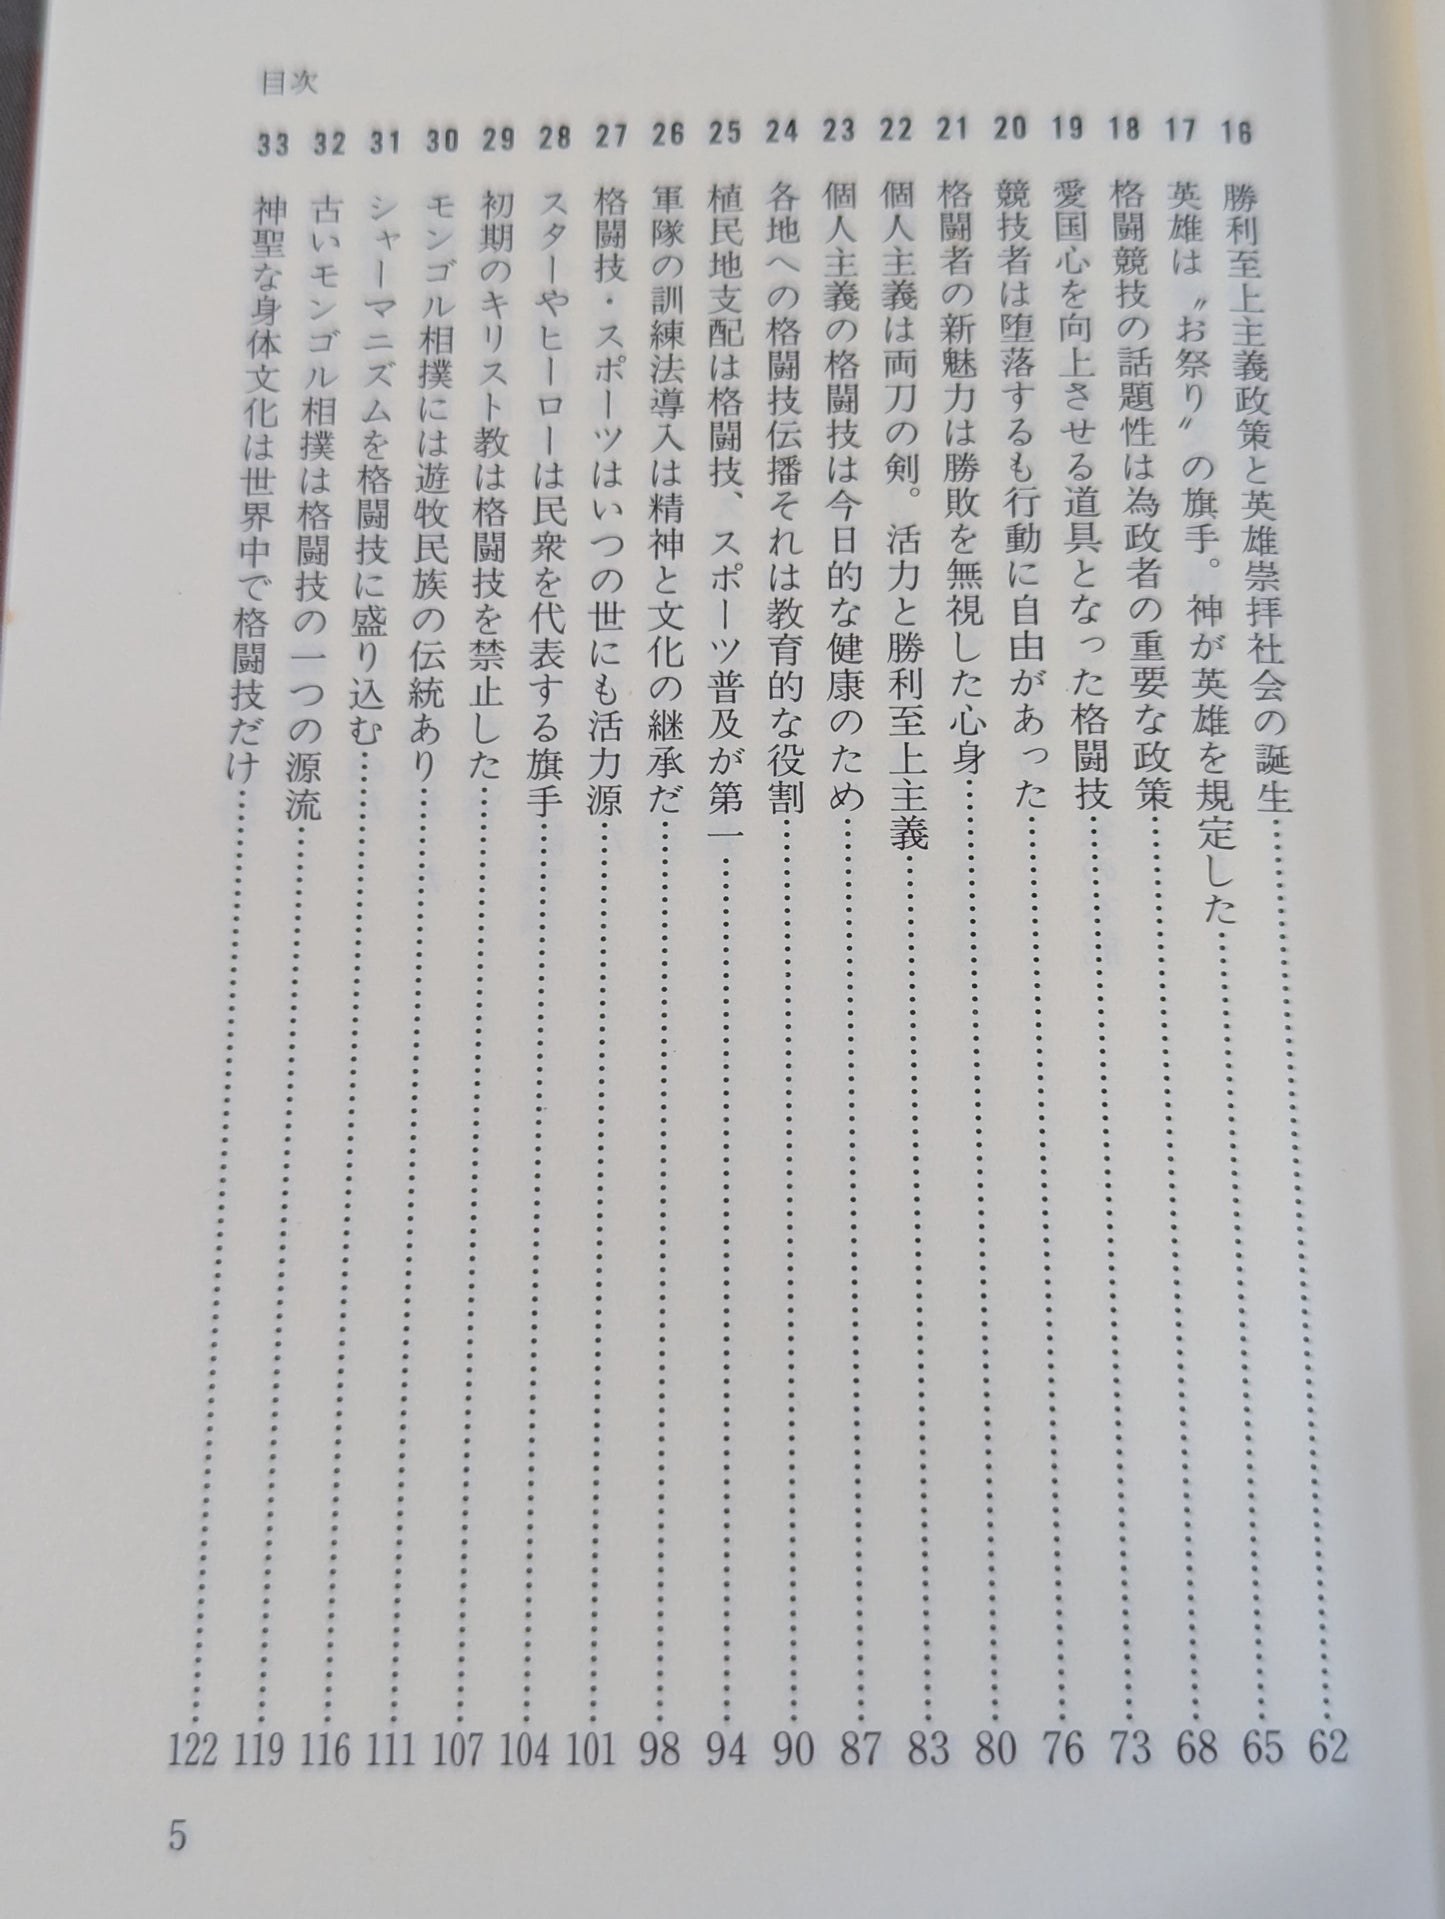 目次
16 勝利至上主義政策と英雄崇拝社会の誕生……62
17 英雄は〝お祭り〟の旗手。神が英雄を規定した……65
18 格闘競技の話題性は為政者の重要な政策……68
19 愛国心を向上させる道具となった格闘技……73
20 競技者は堕落するも行動に自由があった……76
21 格闘者の新魅力は勝敗を無視した心身……80
22 個人主義は両刀の剣。活力と勝利至上主義……83
23 個人主義の格闘技は今日的な健康のため……87
24 各地への格闘技伝播それは教育的な役割……90
25 植民地支配は格闘技、スポーツ普及が第一……94
26 軍隊の訓練法導入は精神と文化の継承だ……98
27 格闘技・スポーツはいつの世にも活力源……101
28 スターやヒーローは民衆を代表する旗手……104
29 初期のキリスト教は格闘技を禁止した……107
30 モンゴル相撲には遊牧民族の伝統あり……111
31 シャーマニズムを格闘技に盛り込む……116
32 古いモンゴル相撲は格闘技の一つの源流……119
33 神聖な身体文化は世界中で格闘技だけ……122
5